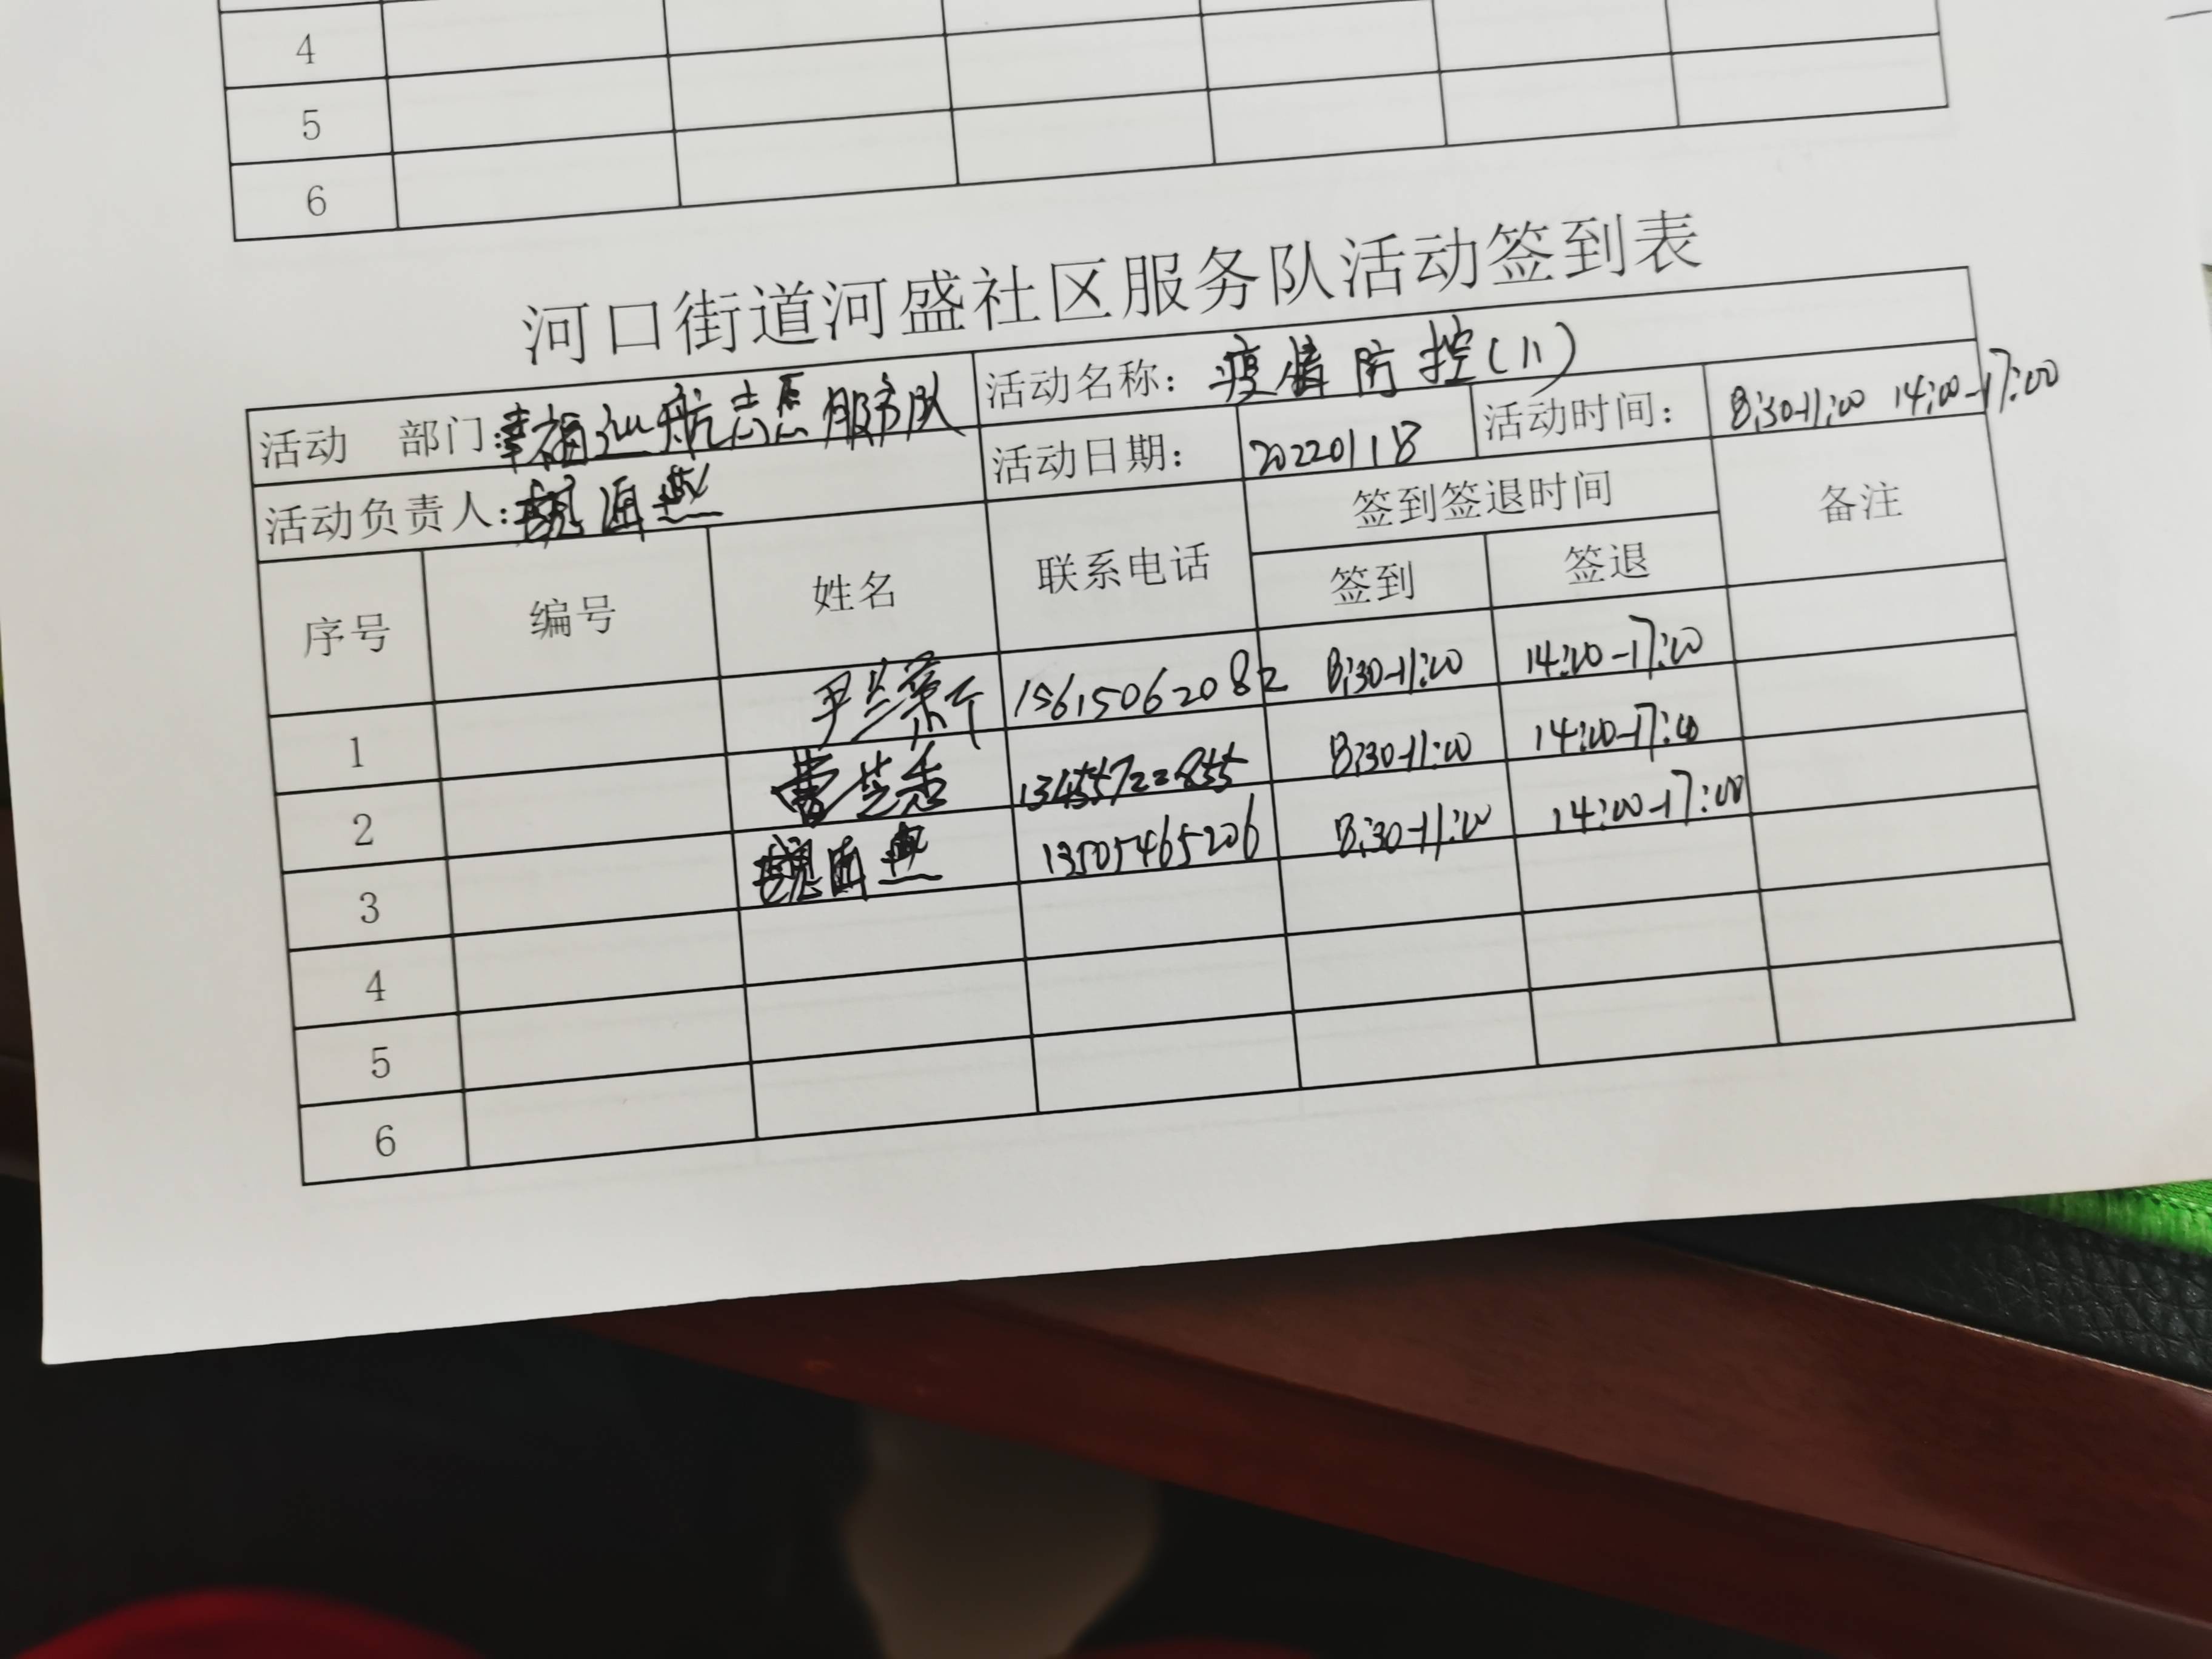 4
5
6
河口街道河盛社区服务队活动签到表
活动 部门:幸福巡航志愿服务队 活动名称: 疫情防控(11)
活动负责人: 活动日期: 20220118 活动时间: 8:30-11:00 14:00-17:00
序号 编号 姓名 联系电话 签到签退时间 备注
签到 签退
1 尹兰 15615062082 8:30-11:00 14:00-17:00
2 8:30-11:00 14:00-17:00
3 13505465206 8:30-11:00 14:00-17:00
4
5
6